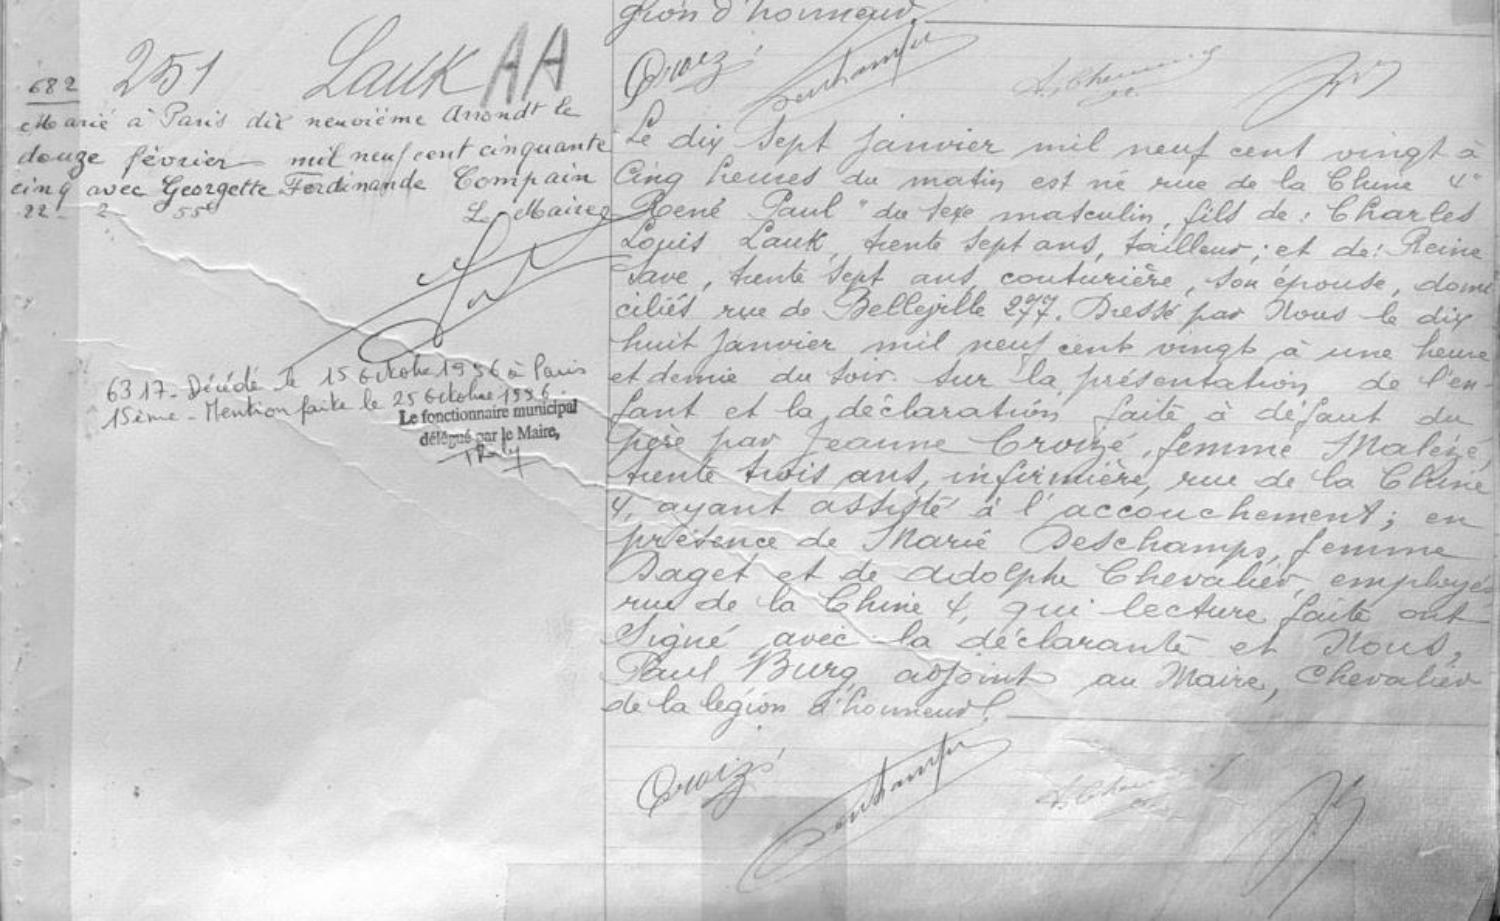 gion d'honneur.
Croizé
251 Lauk AA
682
Marié à Paris dix neuvième Arrondt le
douze février mil neuf cent cinquante
cinq avec Georgette Ferdinande Compain
22 - 2 - 55
L Maire
6317 - Décédé le 15 octobre 1996 à Paris
15ème - Mention faite le 25 octobre 1996.
Le fonctionnaire municipal
délégué par le Maire,
Le dix sept janvier mil neuf cent vingt à
cinq heures du matin est né rue de la Chine 4"
René Paul" du sexe masculin, fils de : Charles
Louis Lauk, trente sept ans, tailleur ; et de : Reine
Save, trente sept ans, couturière, son épouse, domi
ciliés rue de Belleville 277. Dressé par Nous le dix
huit janvier mil neuf cent vingt à une heure
et demie du soir. sur la présentation de l'en-
fant et la déclaration faite à défaut du
père par Jeanne Croizé, femme Malézé,
trente trois ans, infirmière, rue de la Chine
4, ayant assisté à l'accouchement ; en
présence de Marie Deschamps, femme
Daget et de Adolphe Chevalier, employés
rue de la Chine 4, qui lecture faite ont
signé avec la déclarante et Nous,
Paul Burg adjoint au Maire, Chevalier
de la légion d'honneur.
Croizé